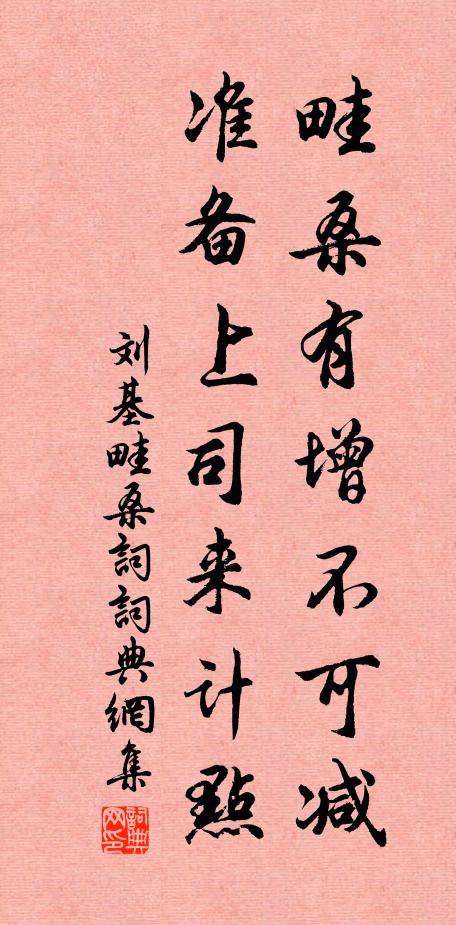 畦桑有增不可减
准备上司来计點
刘基畦桑詞詞典網集
詞典网印